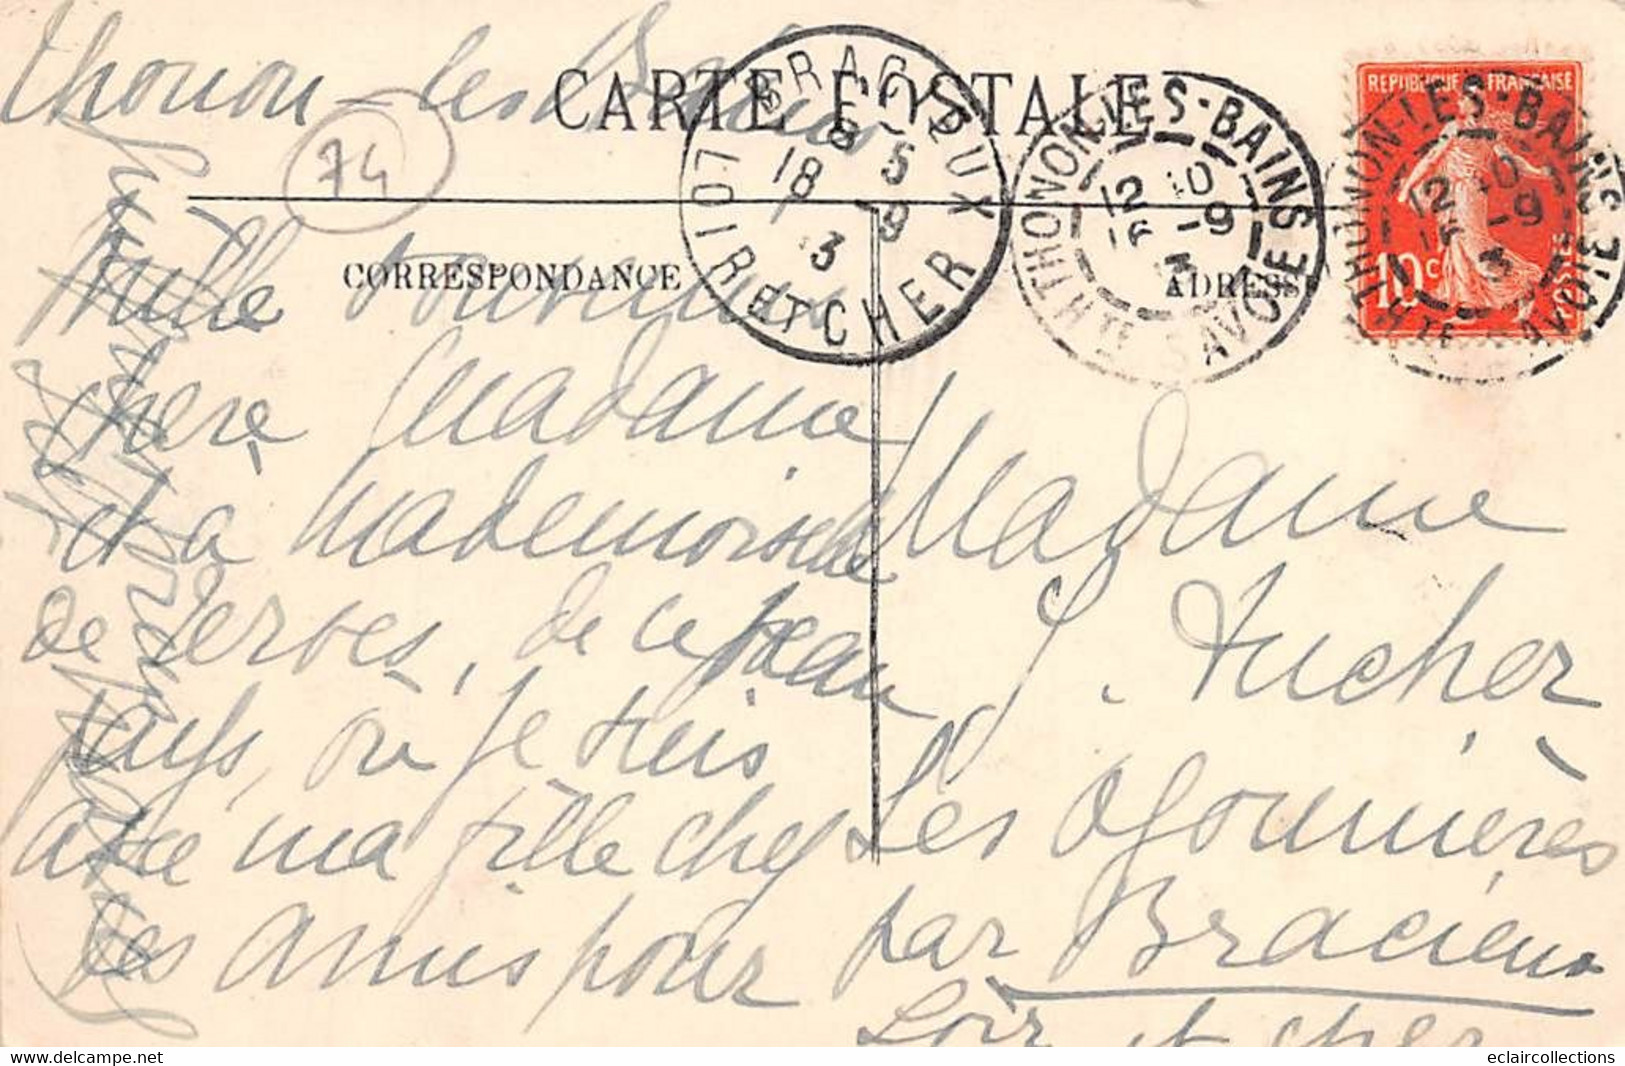 Thonon-les-Bains
CARTE POSTALE
74
BRACIEUX
6 5
18 -9
13
LOIR ET CHER
THONON-LES-BAINS
12 10
16 -9
13
HTE SAVOIE
REPUBLIQUE FRANÇAISE
10c
POSTE
THONON-LES-BAINS
12 10
16 -9
13
HTE SAVOIE
CORRESPONDANCE
ADRESSE
Mille souvenirs
chère Madame
et à Mademoiselle
de Perves, de ce beau
pays, où je suis
avec ma fille chez
des amis pour
Madame
Tucher
Les Ajonnières
par Bracieux
Loir et Cher
eclaircollections